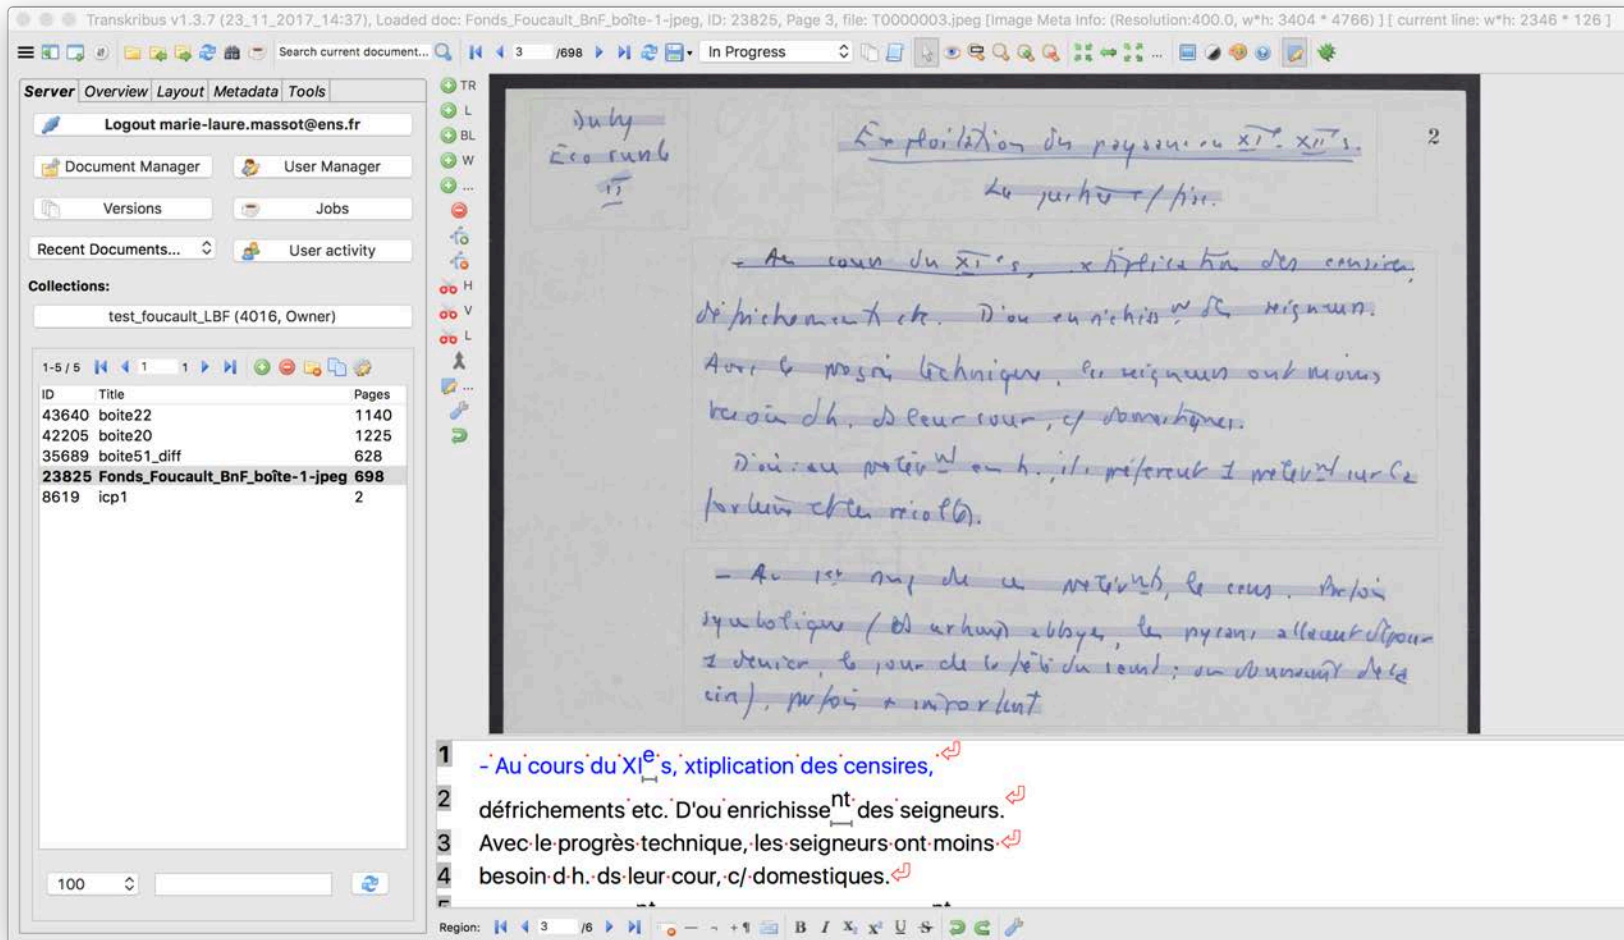 Transkribus v1.3.7 (23_11_2017_14:37), Loaded doc: Fonds_Foucault_BnF_boîte-1-jpeg, ID: 23825, Page 3, file: T0000003.jpeg [Image Meta Info: (Resolution:400.0, w*h: 3404 * 4766) ] [ current line: w*h: 2346 * 126 ]
Search current document... 3 /698 In Progress ...
Server Overview Layout Metadata Tools
Logout marie-laure.massot@ens.fr
Document Manager User Manager
Versions Jobs
Recent Documents... User activity
Collections:
test_foucault_LBF (4016, Owner)
1-5 / 5 1 1
ID Title Pages
43640 boite22 1140
42205 boite20 1225
35689 boite51_diff 628
23825 Fonds_Foucault_BnF_boîte-1-jpeg 698
8619 icp1 2
100
TR
L
BL
W
...
H
V
L
...
Duby
Eco rurale
II
Exploitation du paysan au XIe- XIIe s.
2
La justice / fisc.
- Au cours du XIe s, xtiplication des censires,
défrichements etc. D'ou enrichisset des seigneurs.
Avec le progrès technique, les seigneurs ont moins
besoin d h. ds leur cour, c/ domestiques.
D'où: au prélèvnt en h., ils préfèrent 1 prélèvnt sur le
et les récoltes.
- Au 1er rang de ce prélèvnts, le cens. Parfois
symbolique (ds abbayes, les paysans allaient déposer
1 denier, le jour de la fête du saint; ou donnaient de la
cire), parfois + important
1 - Au cours du XIe s, xtiplication des censires,
2 défrichements etc. D'ou enrichissent des seigneurs.
3 Avec le progrès technique, les seigneurs ont moins
4 besoin d h. ds leur cour, c/ domestiques.
5 nt nt
Region: 3 /6 B I X₂ X² U S